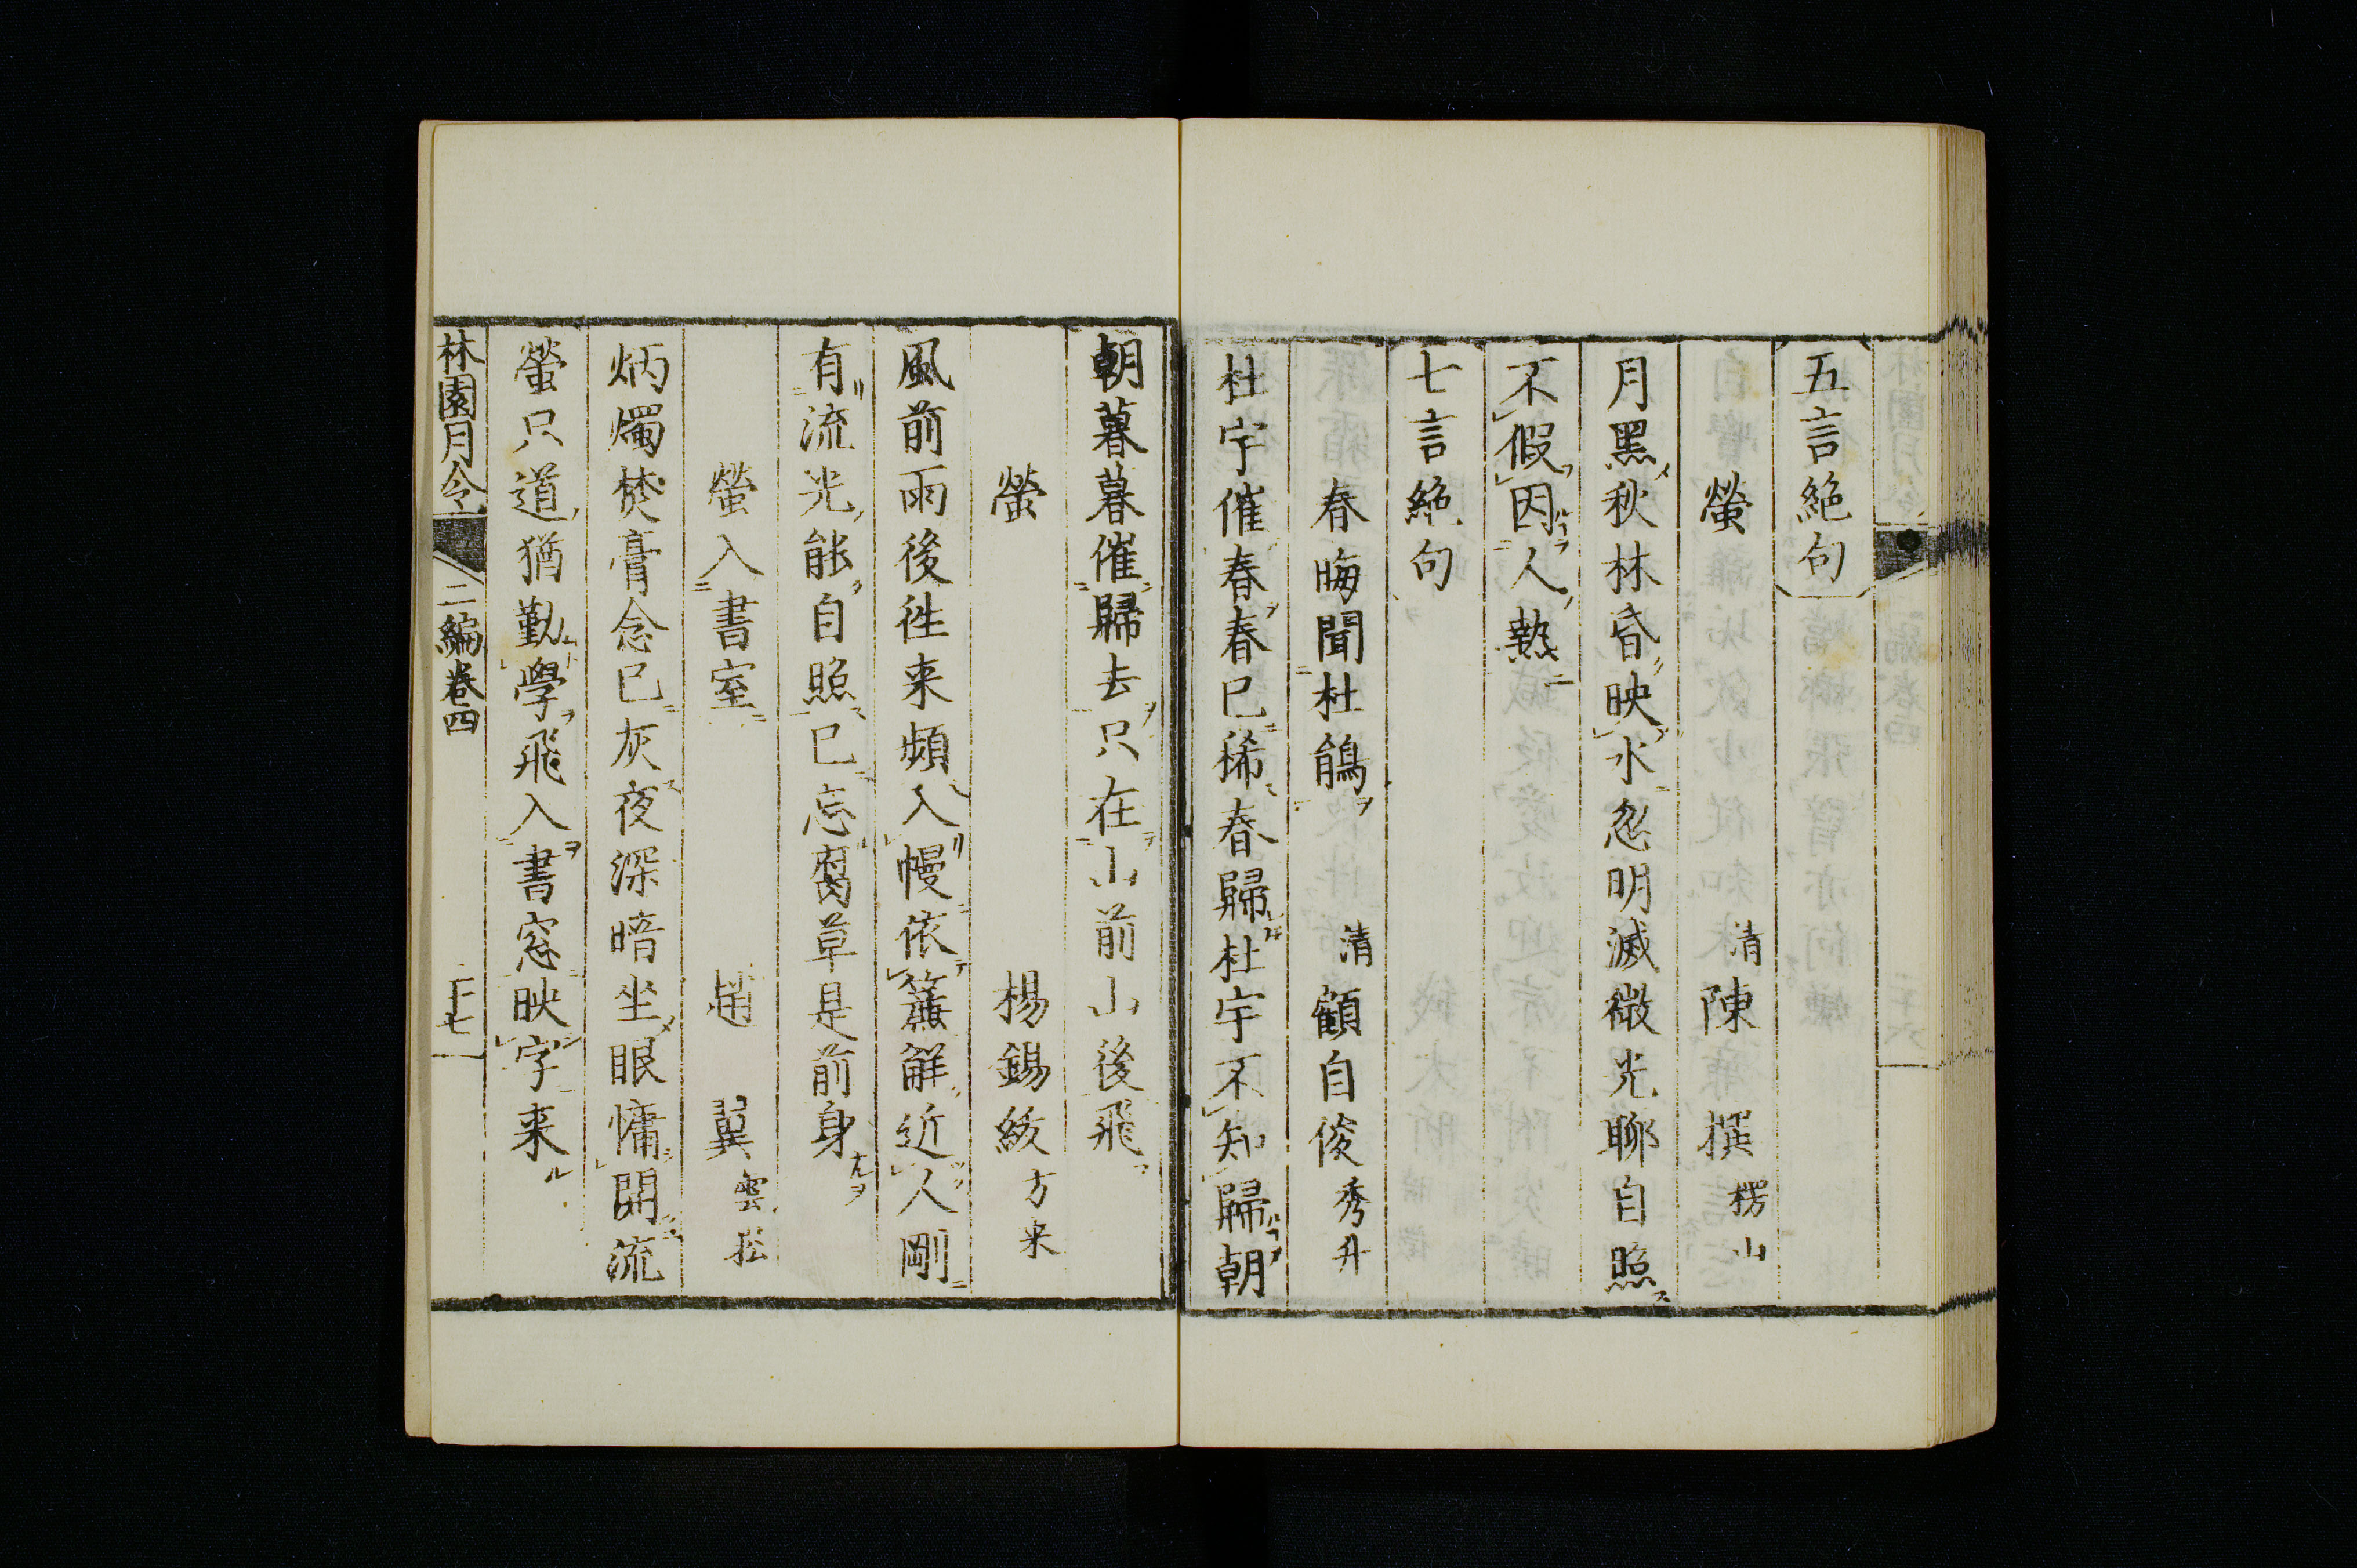 五言絶句
螢 清 陳 撰 楞山
月黒秋林昏映水忽明滅微光聊自照
不假因人熱
七言絶句
春晦聞杜鵑 清 顧自俊 秀升
杜宇催春春已稀春歸杜宇不知歸朝
朝暮暮催歸去只在山前山後飛
螢 楊錫紱 方来
風前雨後往来頻入幔依簾觧近人剛
有流光能自照已忘腐草是前身
螢入書室 趙 翼 雲崧
炳燭焚膏念已灰夜深暗坐眼慵開流
螢只道猶勤學飛入書窓映字来
林園月令 二編卷四 二十七